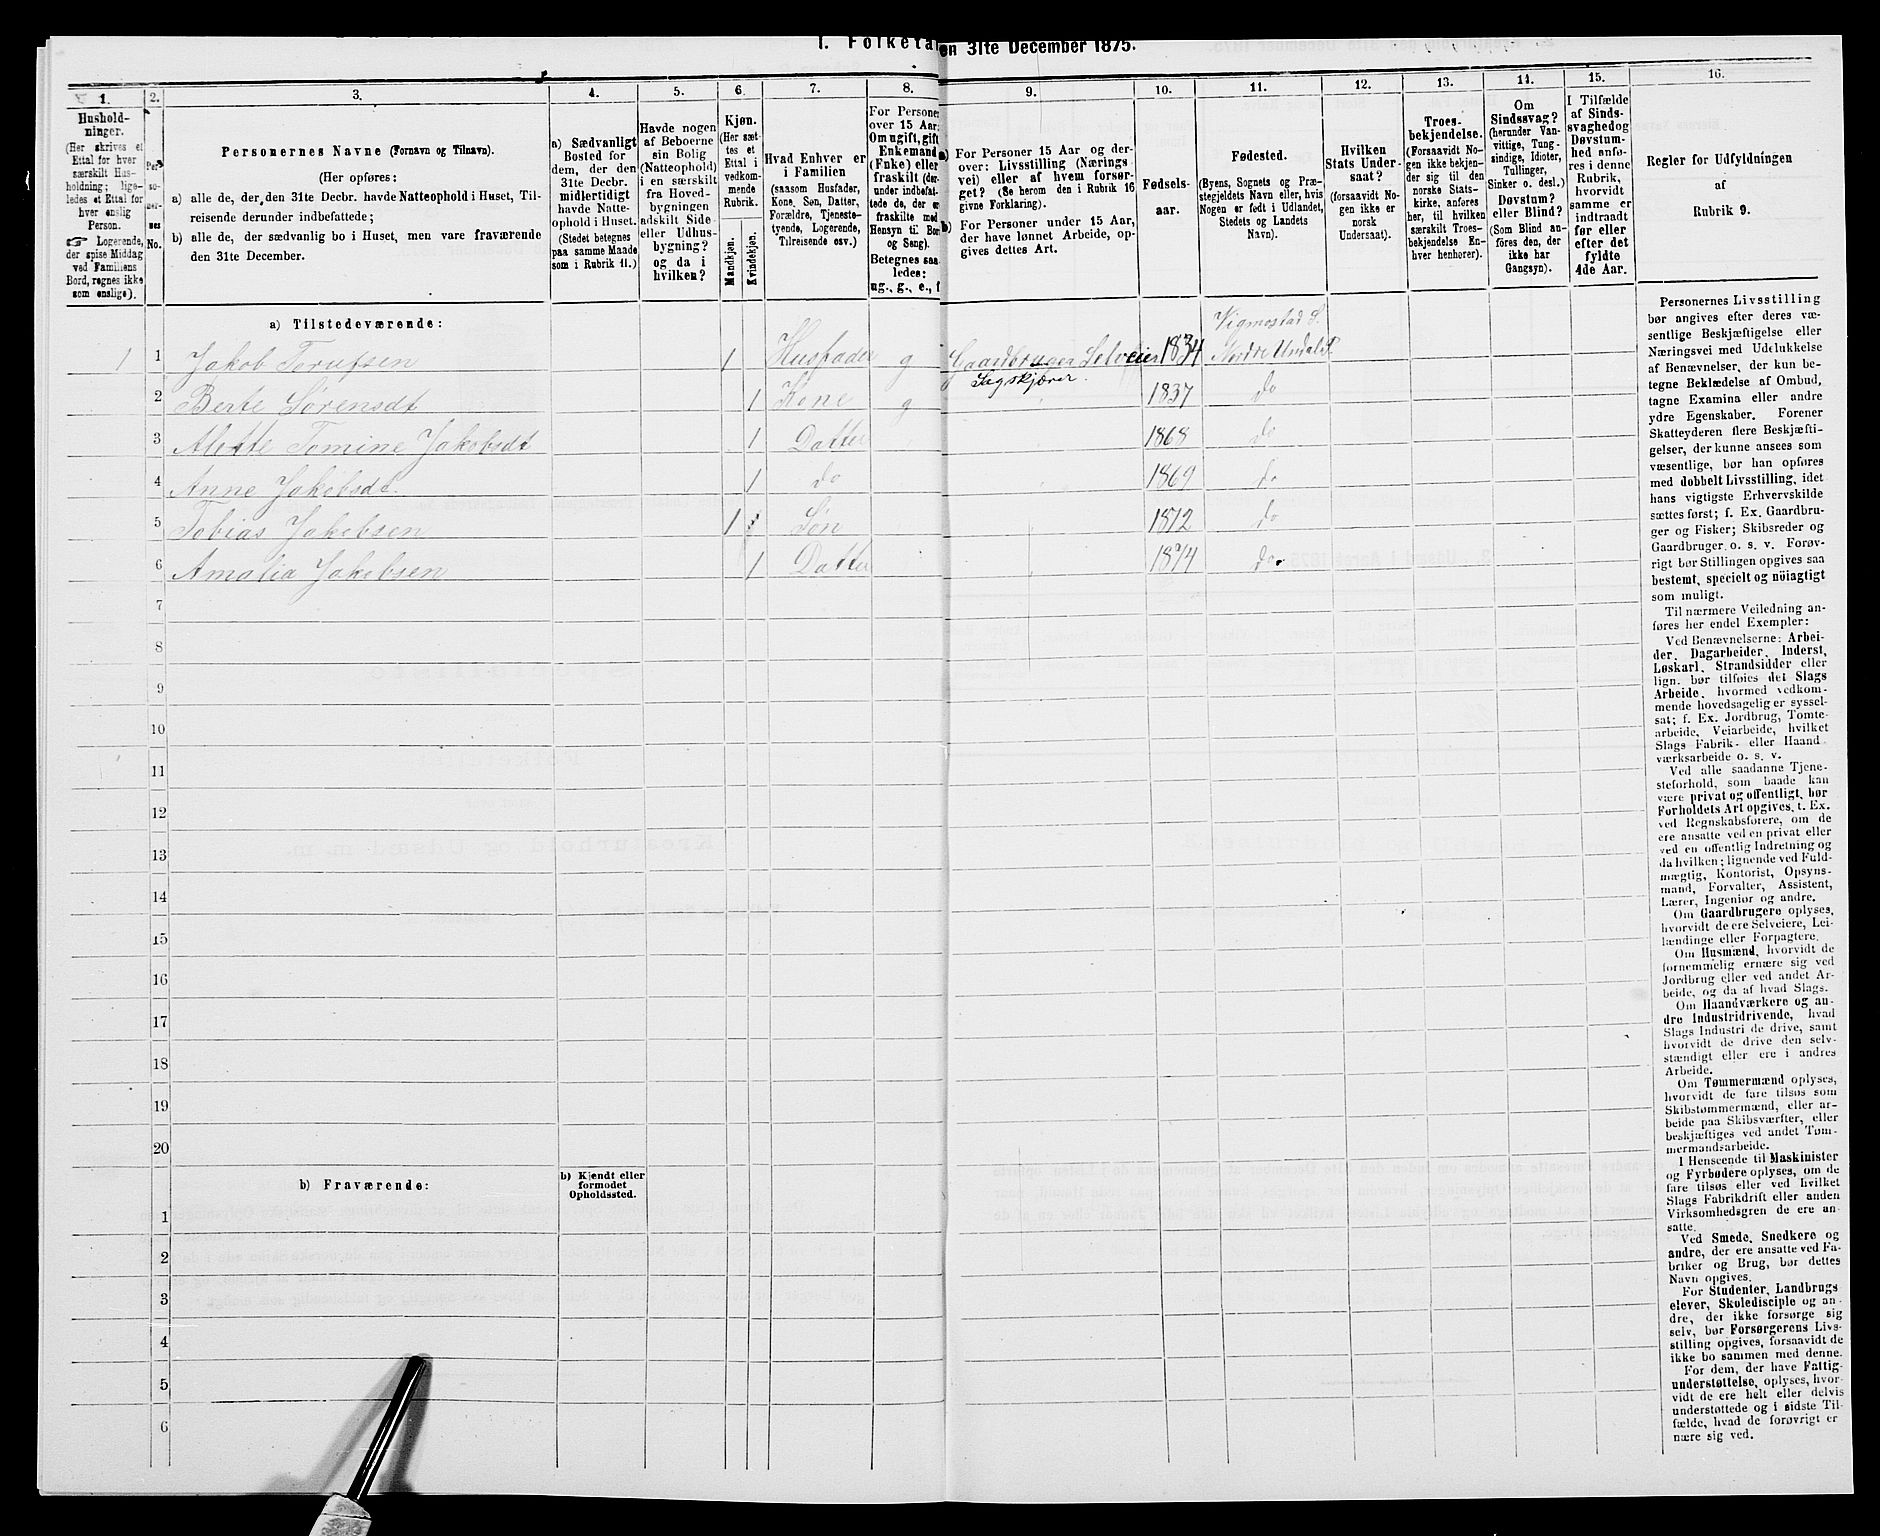 1. Folketæ
en 31te December 1875.
1.
Hushold-
ninger.
(Her skrives et
Ettal for hver
særskilt Hus-
holdning; lige-
ledes et Ettal for
hver enslig
Person.
☞ Logerende,
der spise Middag
ved Familiens
Bord, regnes ikke
som enslige).
2.
Per-
so-
ner-
nes
No.
3.
Personernes Navne (Fornavn og Tilnavn).
(Her opføres:
a) alle de, der den 31te Decbr. havde Natteophold i Huset, Til-
reisende derunder indbefattede;
b) alle de, der sædvanlig bo i Huset, men vare fraværende
den 31te December.
4.
a) Sædvanligt
Bosted for
dem, der den
31te Decbr.
midlertidigt
havde Natte-
ophold i Huset.
(Stedet betegnes
paa samme Maade
som i Rubrik 11.)
5.
Havde nogen
af Beboerne
sin Bolig
(Natteophold)
i en særskilt
fra Hoved-
bygningen
adskilt Side-
eller Udhus-
bygning?
og da i
hvilken?
6.
Kjøn.
(Her sæt-
tes et
Ettal i
vedkom-
mende
Rubrik.
Mandkjøn.
Kvindekjøn.
7.
Hvad Enhver er
i Familien
(saasom Husfader,
Kone, Søn, Datter,
Forældre, Tjeneste-
tyende, Logerende,
Tilreisende osv.)
8.
For Persone
over 15 Aar:
Om ugift, gift
Enkemand
(Enke) eller
fraskilt (der-
under indbefat-
tede de, der e
fraskilte med
Hensyn til Bor
og Seng).
Betegnes saa-
ledes:
ug., g., e., f
9.
a) For Personer 15 Aar og der-
over: Livsstilling (Nærings
vei) eller af hvem forsør-
get? (Se herom den i Rubrik 16
givne Forklaring).
b) For Personer under 15 Aar,
der have lønnet Arbeide, op-
gives dettes Art.
10.
Fødsels-
aar.
11.
Fødested.
(Byens, Sognets og Præ-
stegjeldets Navn eller, hvis
Nogen er født i Udlandet,
Stedets og Landets
Navn).
12.
Hvilken
Stats Under-
saat?
(forsaavidt No-
gen ikke er
norsk
Undersaat).
13.
Troes-
bekjendelse.
(Forsaavidt No-
gen ikke bekjen-
der sig til den
norske Stats-
kirke, anføres
her, til hvilken
særskilt Troes-
bekjendelse En-
hver henhører).
14.
Om
Sindssvag?
(herunder Van-
vittige, Tung-
sindige, Idioter,
Tullinger,
Sinker o. desl.)
Døvstum?
eller Blind?
(Som Blind an-
føres den, der
ikke har
Gangsyn).
15.
I Tilfælde
af Sinds-
svaghed og
Døvstum-
hed anfø-
res i denne
Rubrik,
hvorvidt
samme er
indtraadt
før eller
efter det
fyldte
4de Aar.
16.
Regler for Udfyldningen
af
Rubrik 9.
a) Tilstedeværende:
Vigmostad S.
1 1 Jakob Torufsen 1 Husfader g Gaardbruger Selveier 1834 Nordre Undal P.
Sagskjærer.
2 Berte Sørensdt 1 Kone g 1837 do
3 Alette Tomine Jakobsdt 1 Datter 1868 do
4 Anne Jakobsdt. 1 do 1869 do
5 Tobias Jakobsen 1 Søn 1872 do
6 Amalia Jakobsen 1 Datter 1874 do.
7
8
9
10
11
12
13
14
15
16
17
18
19
20
b) Fraværende:
b) Kjendt eller
formodet
Opholdssted.
1
2
3
4
5
6
Personernes Livsstilling
bør angives efter deres væ-
sentlige Beskjæftigelse eller
Næringsvei med Udelukkelse
af Benævnelser, der kun be-
tegne Beklædelse af Ombud,
tagne Examina eller andre
ydre Egenskaber. Forener
Skatteyderen flere Beskjæfti-
gelser, der kunne ansees som
væsentlige, bør han opføres
med dobbelt Livsstilling, idet
hans vigtigste Erhvervskilde
sættes først; f. Ex. Gaardbru-
ger og Fisker; Skibsreder og
Gaardbruger o. s. v. Forøv-
rigt bør Stillingen opgives saa
bestemt, specielt og nøiagtigt
som muligt.
Til nærmere Veiledning an-
føres her endel Exempler:
Ved Benævnelserne: Arbei-
der, Dagarbeider, Inderst,
Løskarl, Strandsidder eller
lign. bør tilføies det Slags
Arbeide, hvormed vedkom-
mende hovedsagelig er syssel-
sat; f. Ex. Jordbrug, Tomte-
arbeide, Veiarbeide, hvilket
Slags Fabrik- eller Haand
værksarbeide o. s. v.
Ved alle saadanne Tjene-
steforhold, som baade kan
være privat og offentligt, bør
Forholdets Art opgives, t. Ex.
ved Regnskabsførere, om de
ere ansatte ved en privat eller
ved en offentlig Indretning og
da hvilken; lignende ved Fuld-
mægtig, Kontorist, Opsyns-
mand, Forvalter, Assistent,
Lærer, Ingeniør og andre.
Om Gaardbrugere oplyses,
hvorvidt de ere Selveiere, Lei-
lændinge eller Forpagtere.
Om Husmænd, hvorvidt de
fornemmelig ernære sig ved
Jordbrug eller ved andet Ar-
beide, og da af hvad Slags.
Om Haandværkere og an-
dre Industridrivende, hvad
Slags Industri de drive, samt
hvorvidt de drive den selv-
stændigt eller ere i andres
Arbeide.
Om Tømmermænd oplyses,
hvorvidt de fare tilsøs som
Skibstømmermænd, eller ar-
beide paa Skibsværfter, eller
beskjæftiges ved andet Tøm-
mermandsarbeide.
I Henseende til Maskinister
og Fyrbødere oplyses, om de
fare tilsøs eller ved hvilket
Slags Fabrikdrift eller anden
Virksomhedsgren de ere an-
satte.
Ved Smede, Snedkere og
andre, der ere ansatte ved Fa-
briker og Brug, bør dettes
Navn opgives.
For Studenter, Landbrugs
elever, Skoledisciple og an-
dre, der ikke forsørge sig
selv, bør Forsørgerens Livs-
stilling opgives, forsaavidt de
ikke bo sammen med denne.
For dem, der have Fattig-
understøttelse, oplyses, hvor-
vidt de ere helt eller delvis
understøttede og i sidste Til-
fælde, hvad de forøvrigt er
nære sig ved.